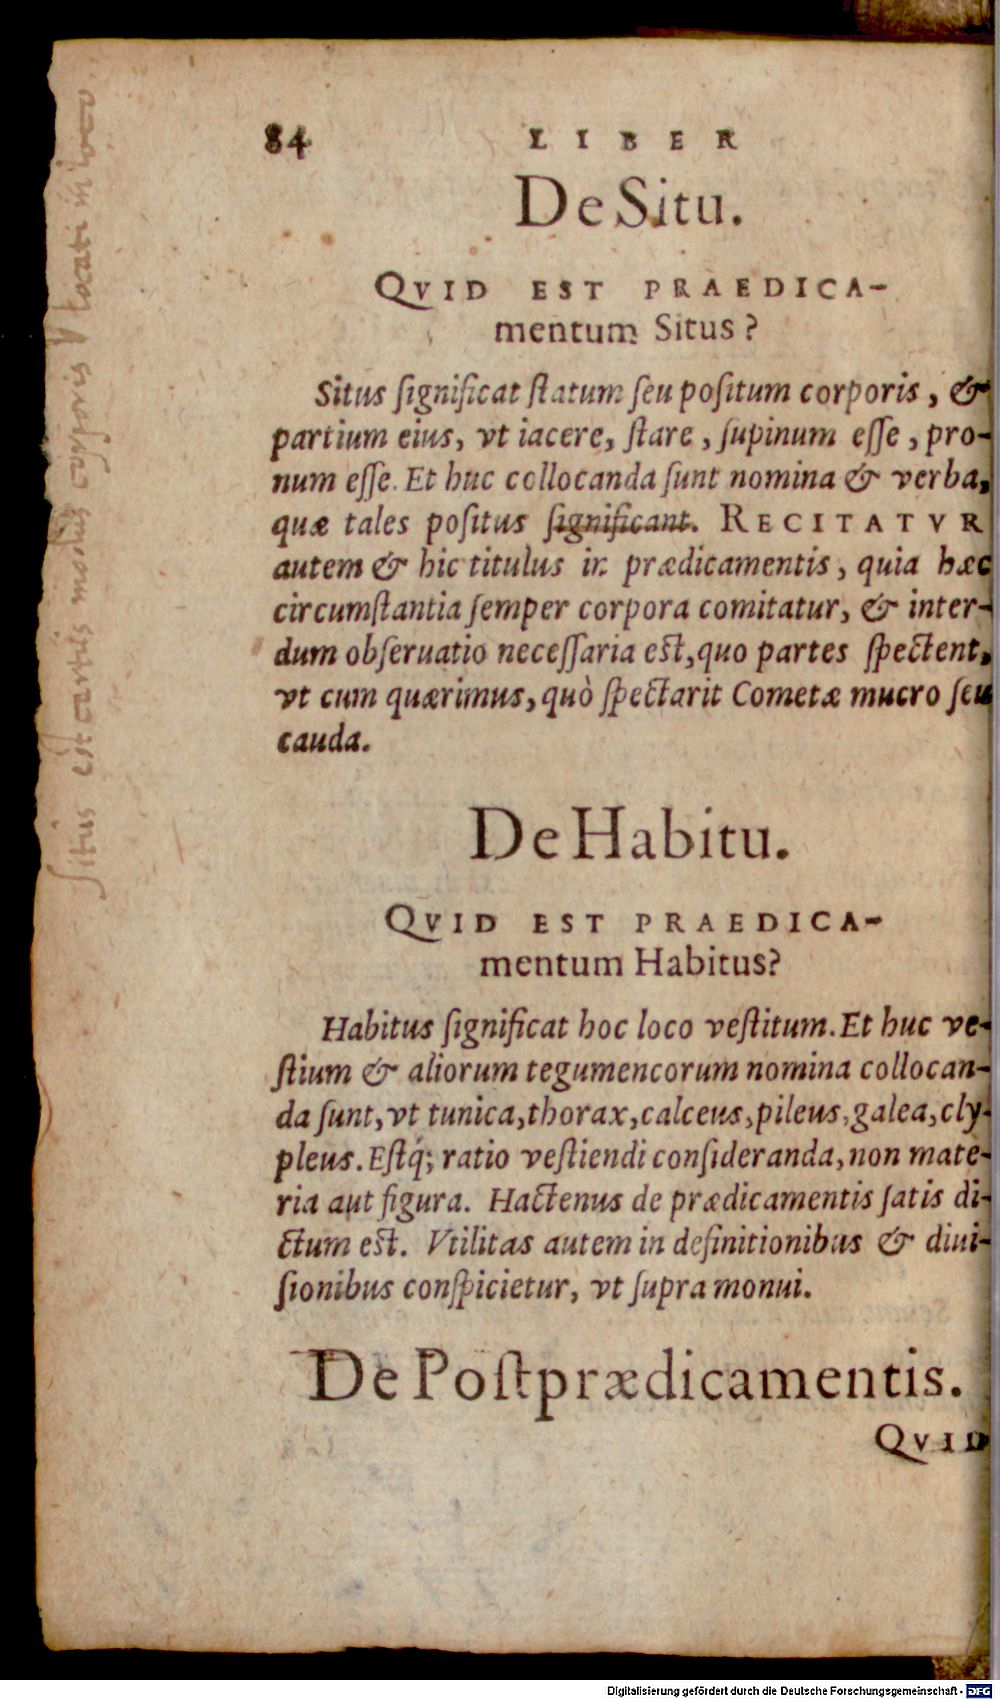 84 LIBER
De Situ.
QVID EST PRAEDICA-
mentum Situs?
Situs ſignificat ſtatum ſeu poſitum corporis, &
partium eius, vt iacere, ſtare, ſupinum eſſe, pro-
num eſſe. Et huc collocanda ſunt nomina & verba,
quæ tales poſitus ſignificant. RECITATVR
autem & hic titulus in prædicamentis, quia hæc
circumſtantia ſemper corpora comitatur, & inter-
dum obſeruatio neceſſaria eſt, quo partes ſpectent,
vt cum quærimus, quò ſpectarit Cometæ mucro ſeu
cauda.
De Habitu.
QVID EST PRAEDICA-
mentum Habitus?
Habitus ſignificat hoc loco veſtitum. Et huc ve-
ſtium & aliorum tegumencorum nomina collocan-
da ſunt, vt tunica, thorax, calceus, pileus, galea, cly-
pleus. Eſtq́; ratio veſtiendi conſideranda, non mate-
ria aut figura. Hactenus de prædicamentis ſatis di-
ctum eſt. Vtilitas autem in definitionibus & diui-
ſionibus conſpicietur, vt ſupra monui.
De Poſtprædicamentis.
QVID
ſitus est certus modus corporis locati in loco
Digitalisierung gefördert durch die Deutsche Forschungsgemeinschaft - DFG